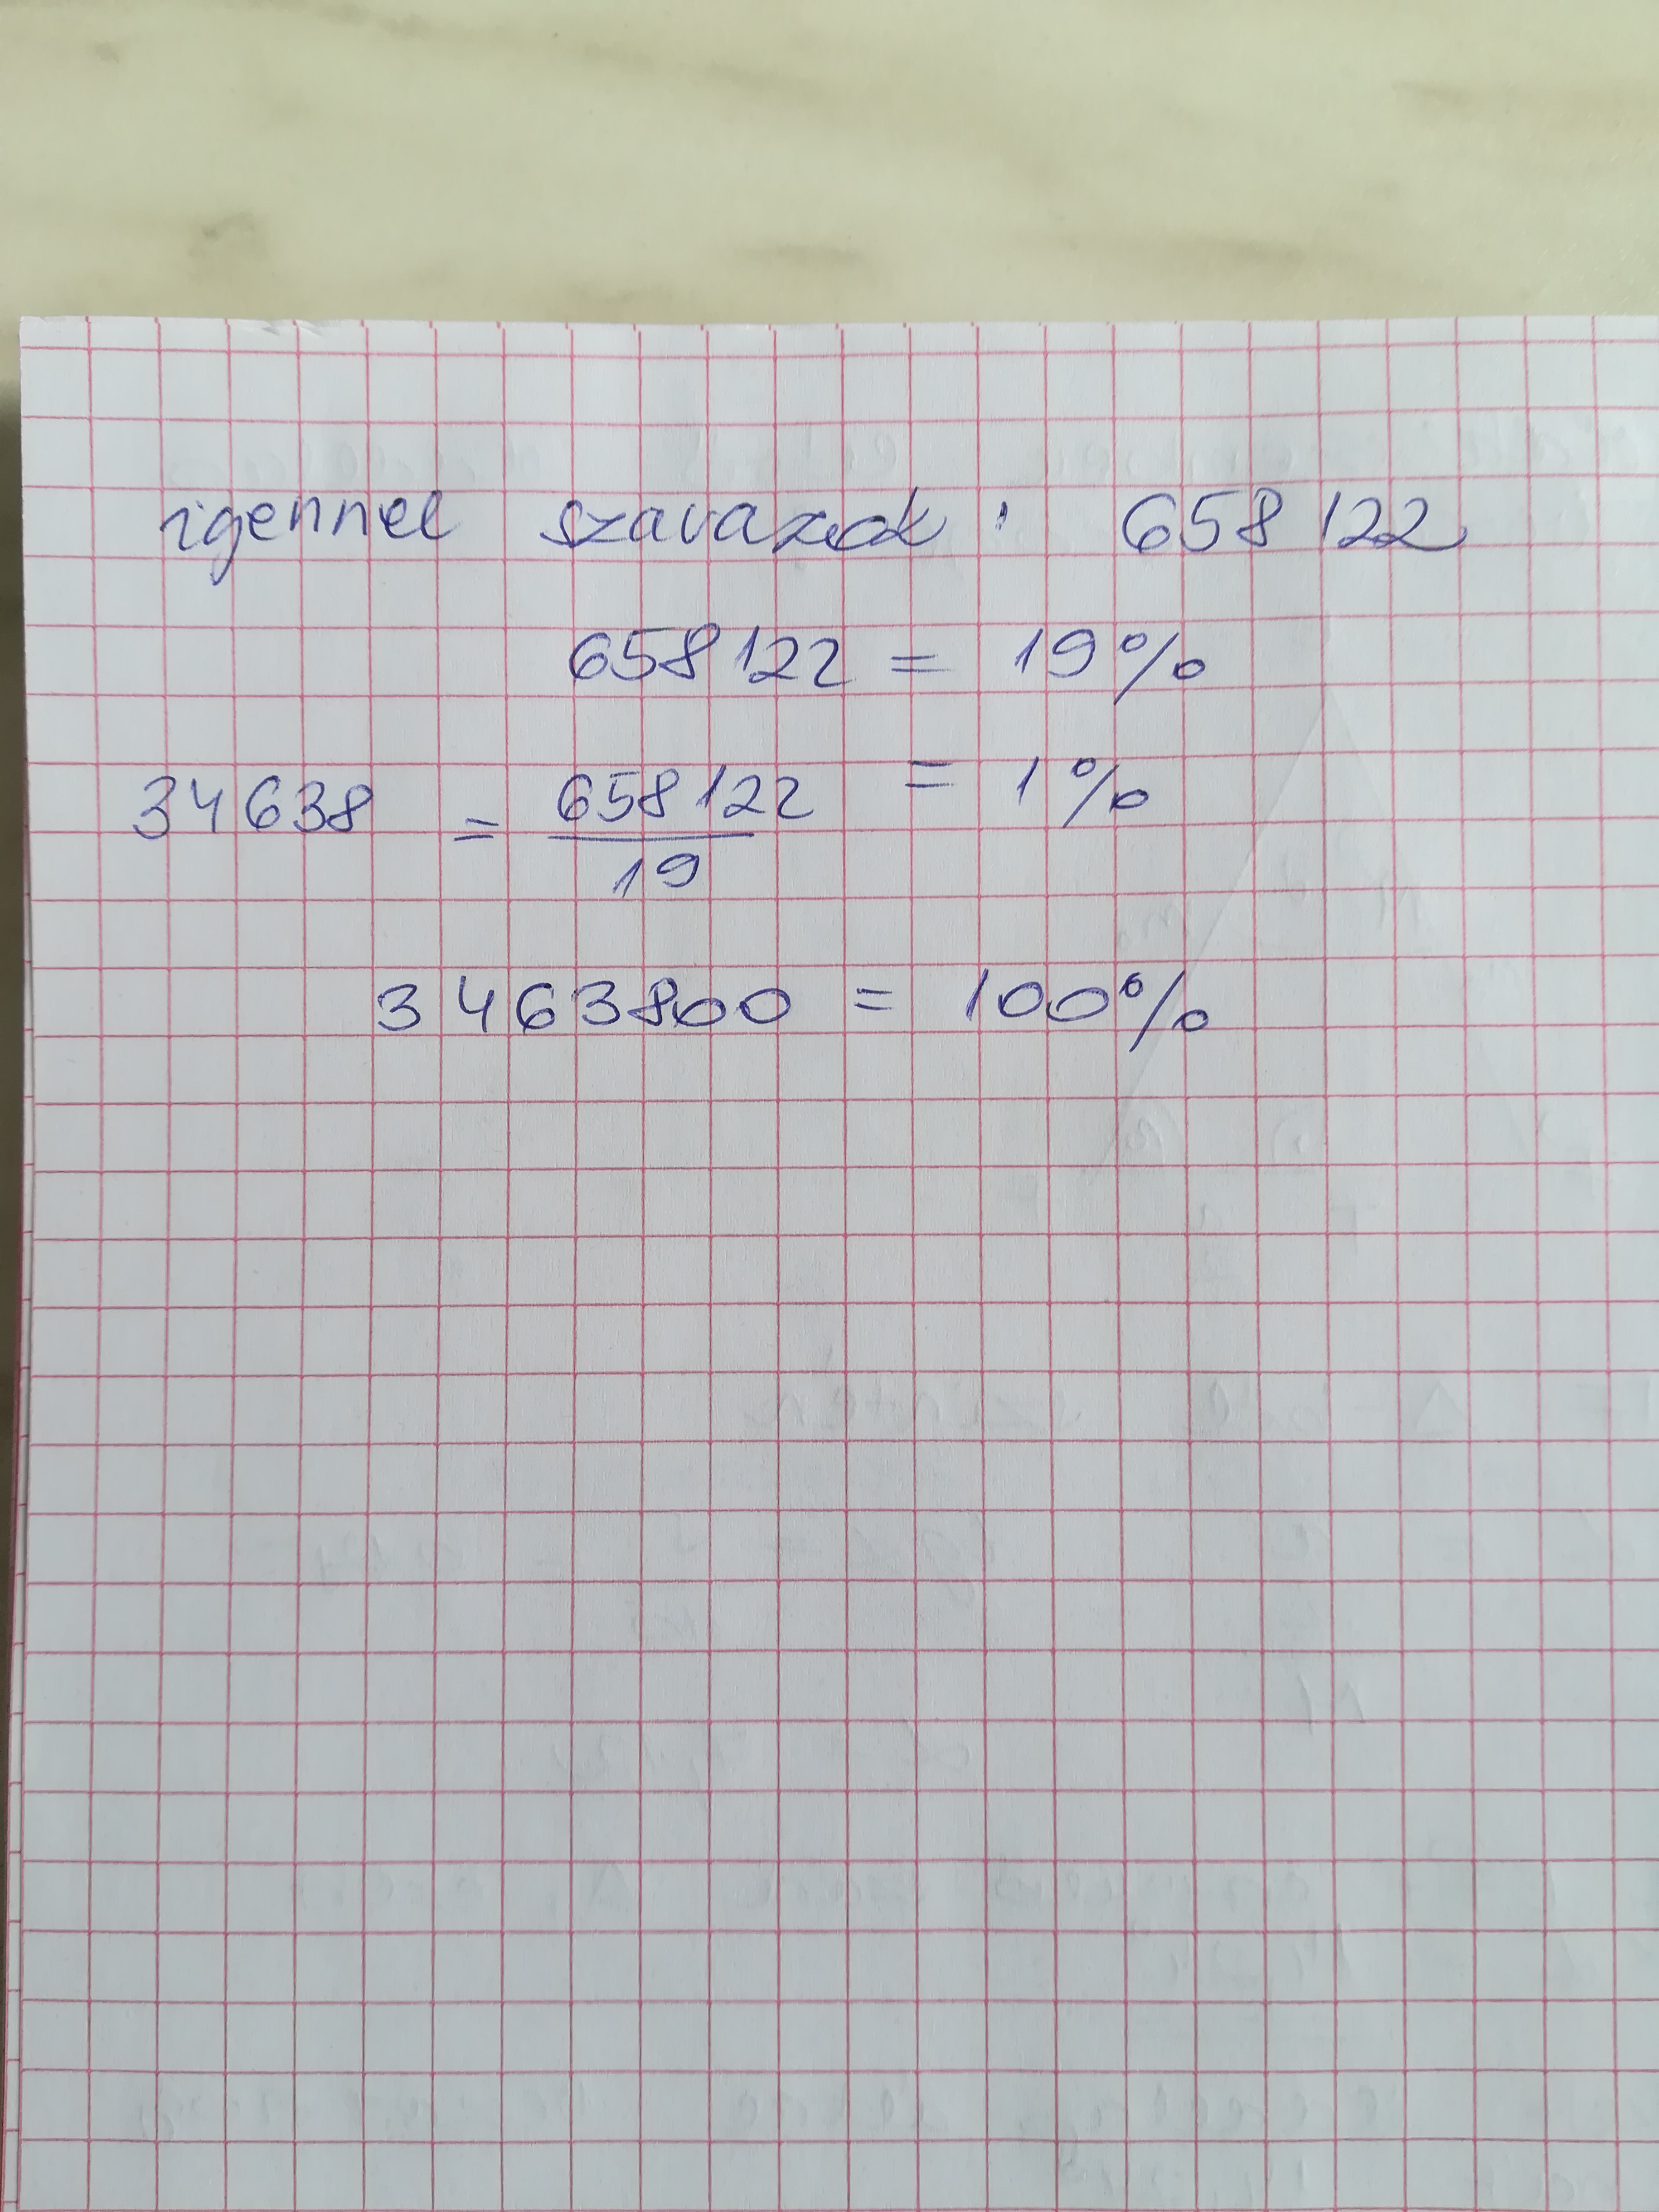 igennel szavazok : 658 122
658 122 = 19%
34 638 = 658 122 / 19 = 1%
3 463 800 = 100%